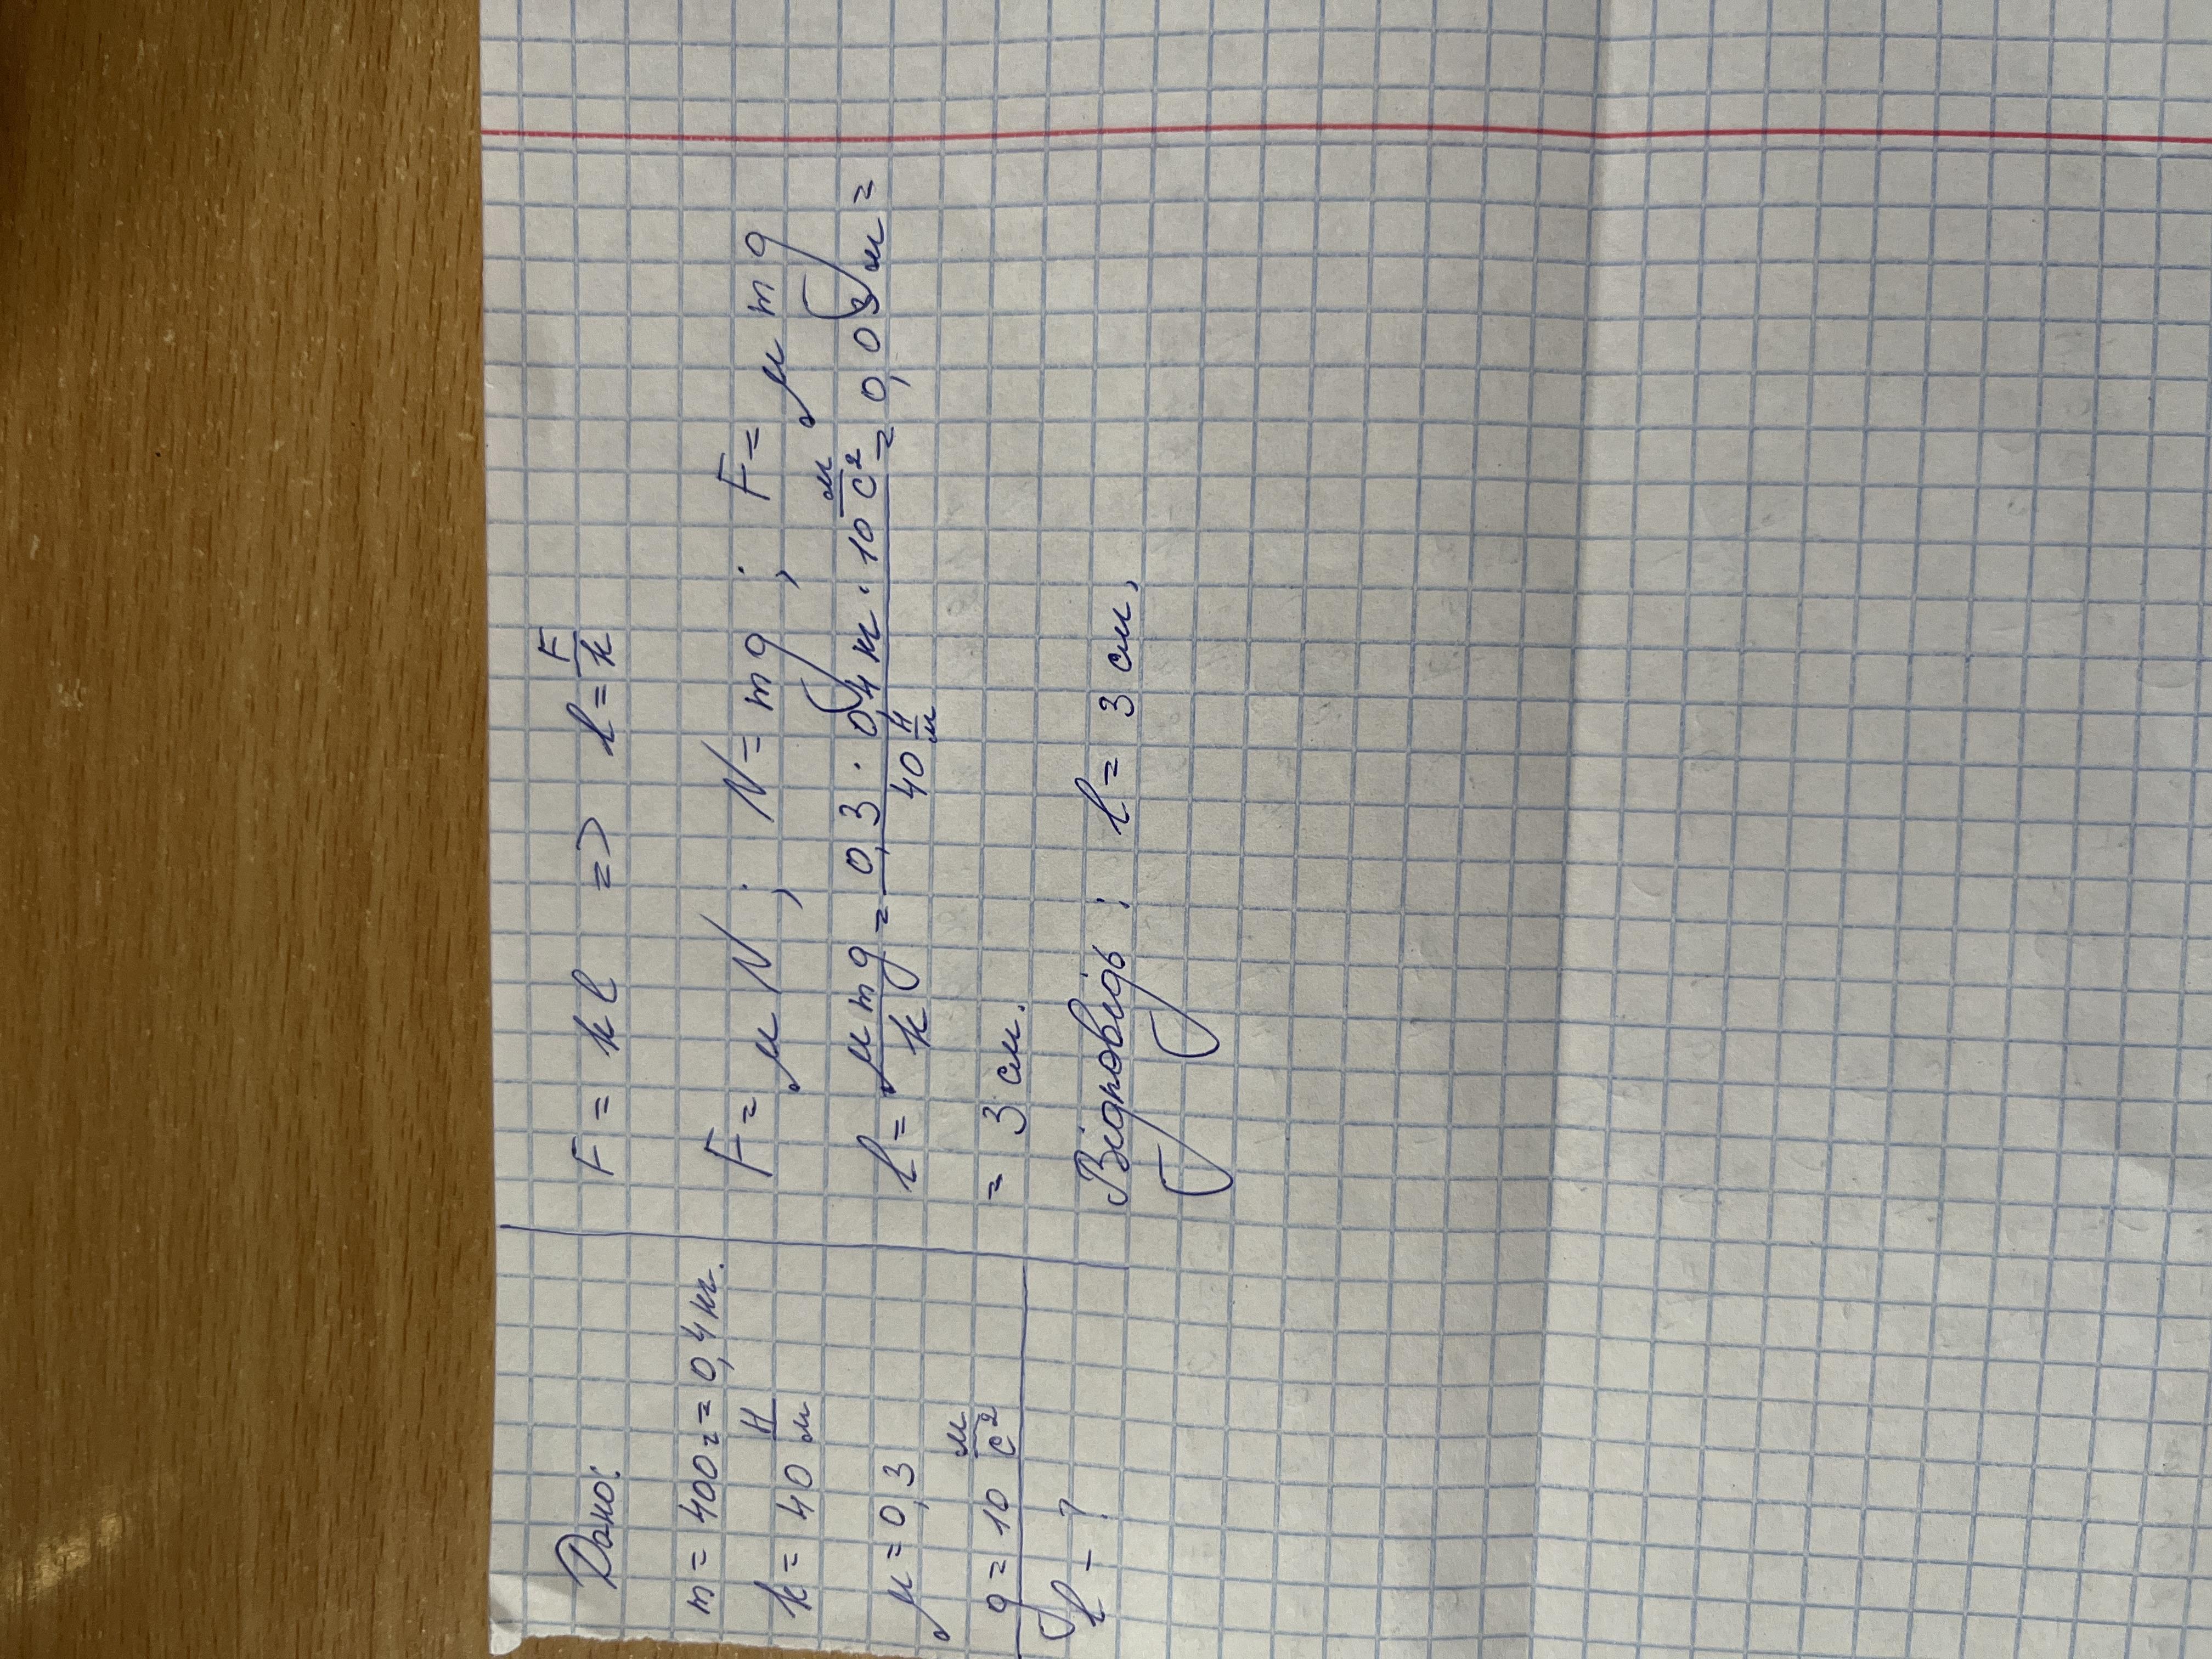 Дано:
m = 400 г = 0,4 кг.
k = 40 Н/м
μ = 0,3
g = 10 м/с²
l - ?
F = kl => l = F/k
F = μN ; N = mg ; F = μmg
l = μmg/k = 0,3 · 0,4 кг · 10 м/с² / 40 Н/м = 0,03 м =
= 3 см.
Відповідь : l = 3 см,